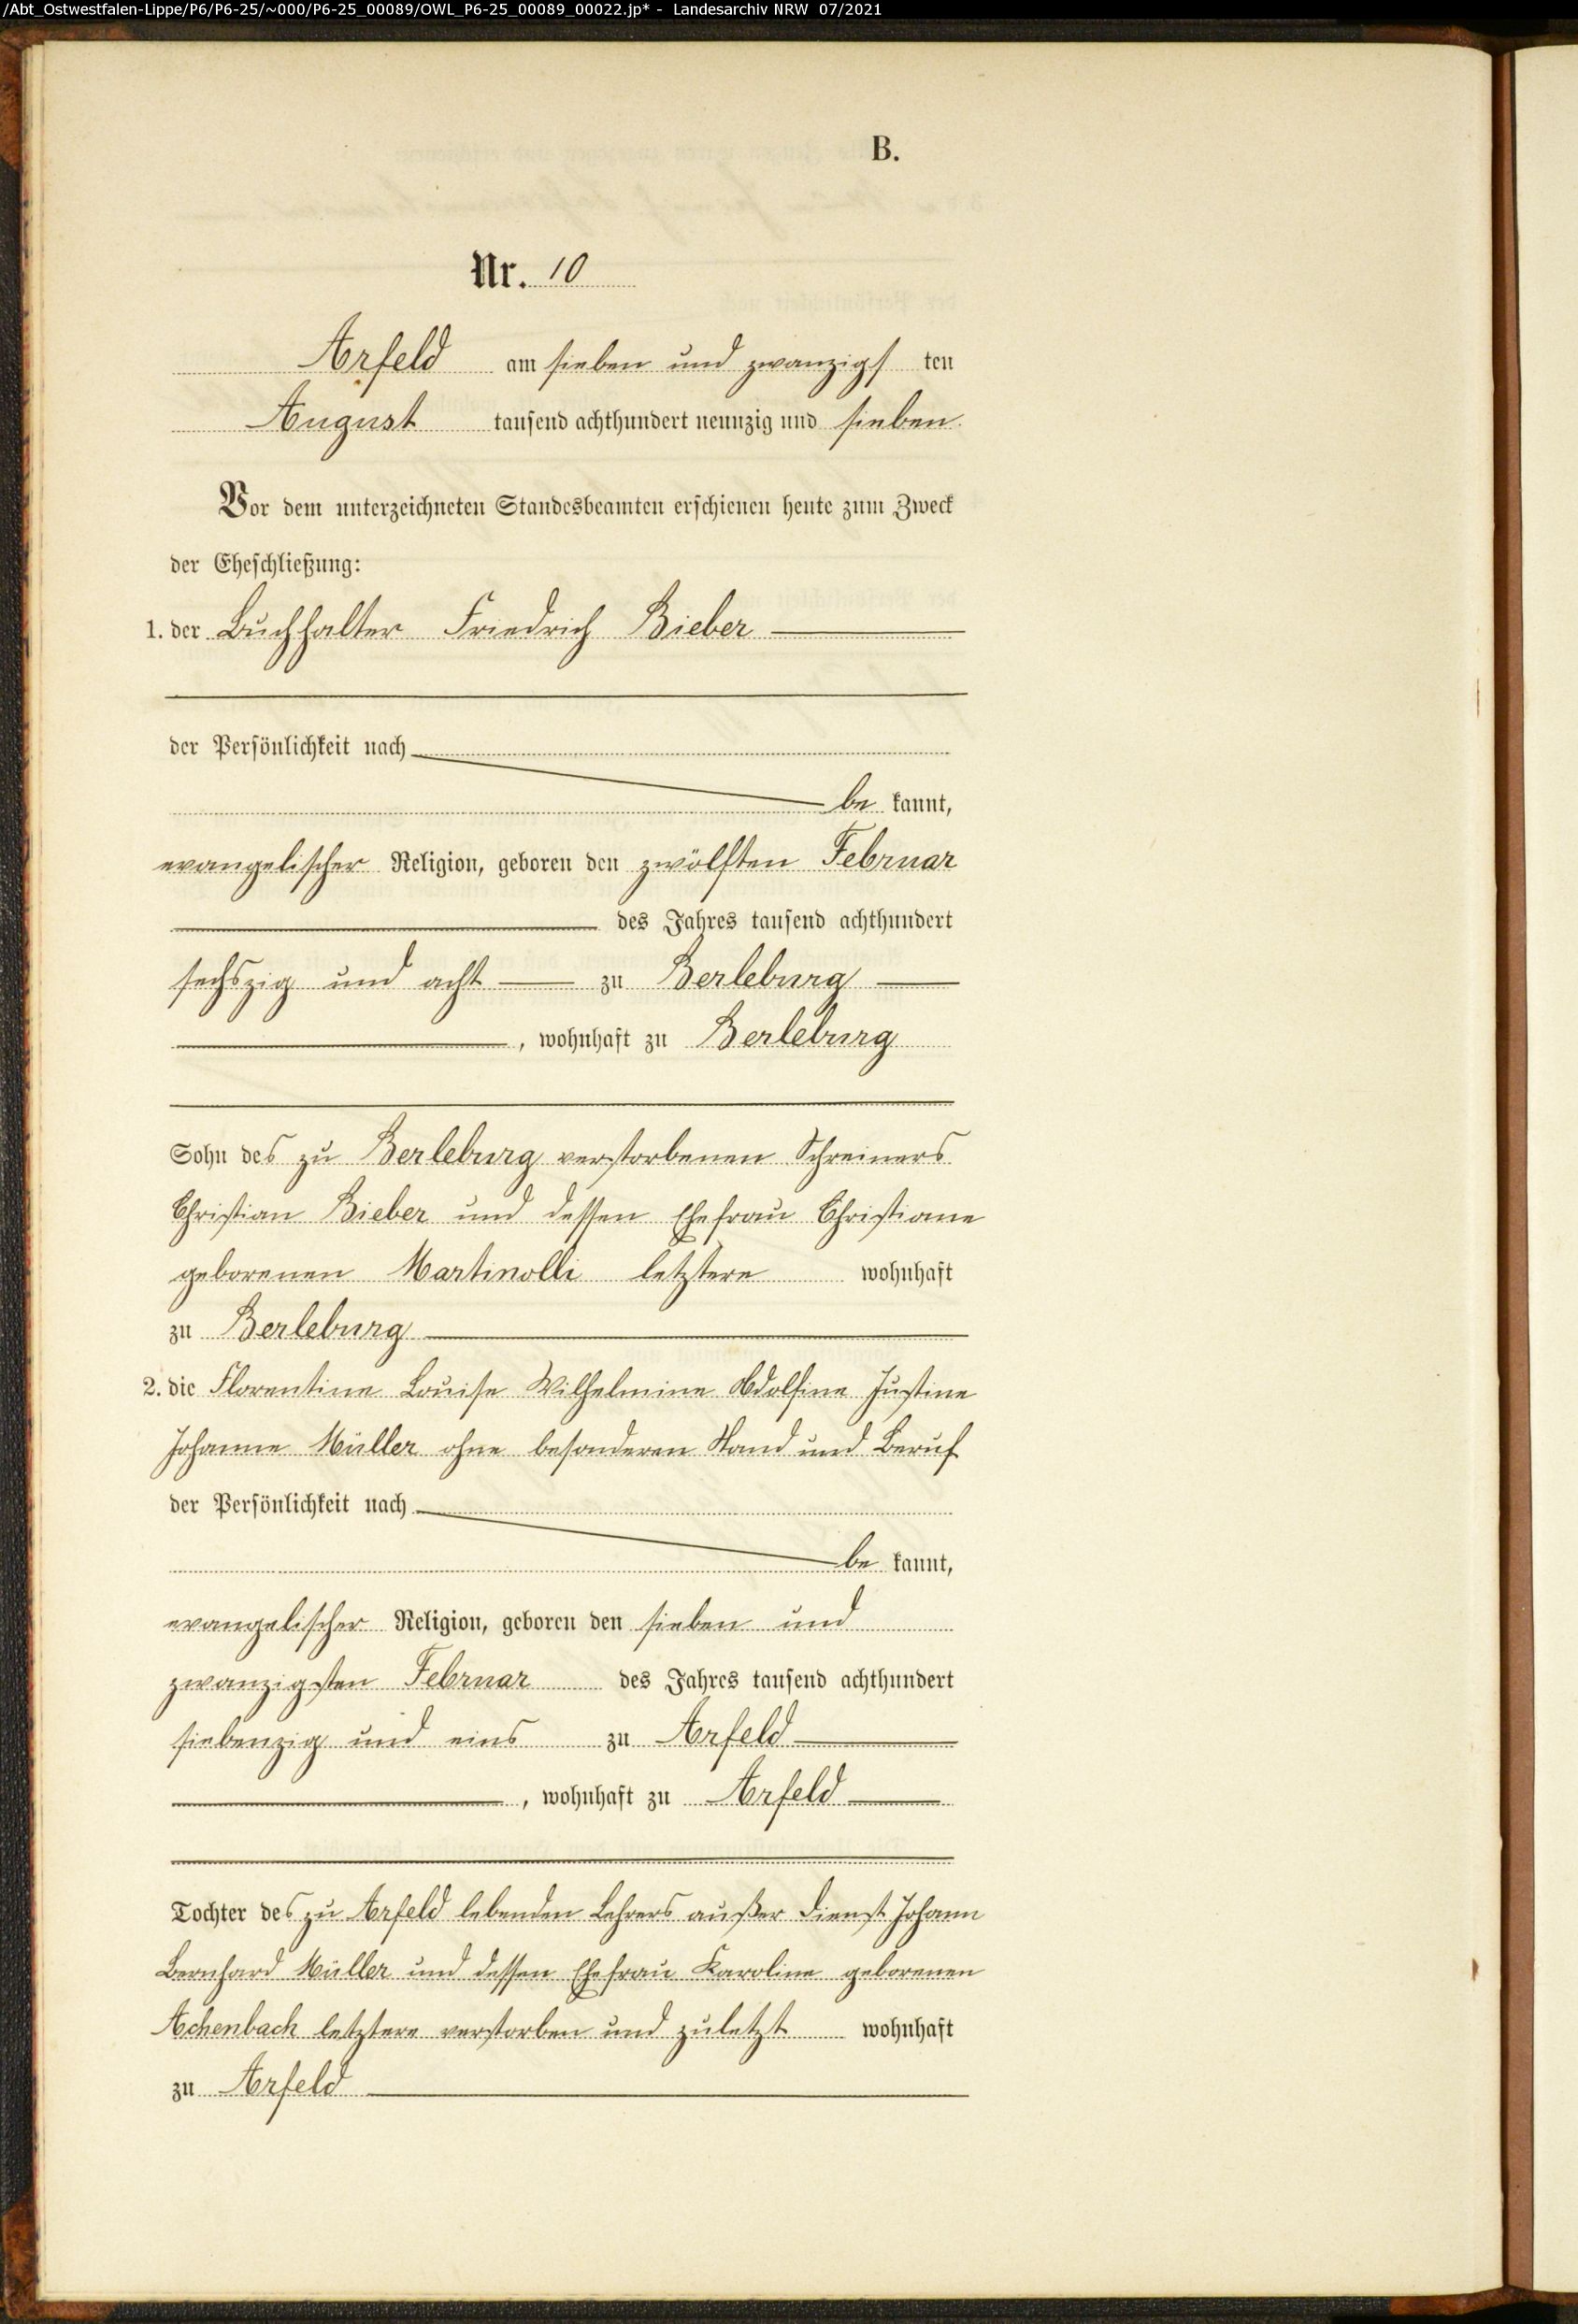 /Abt_Ostwestfalen-Lippe/P6/P6-25/~000/P6-25_00089/OWL_P6-25_00089_00022.jp* - Landesarchiv NRW 07/2021
B.
Nr. 10
Arfeld am sieben und zwanzigs ten
August tausend achthundert neunzig und sieben
Vor dem unterzeichneten Standesbeamten erschienen heute zum Zweck
der Eheschließung:
1. der Buchhalter Friedrich Bieber
der Persönlichkeit nach
be kannt,
evangelischer Religion, geboren den zwölften Februar
des Jahres tausend achthundert
sechszig und acht zu Berleburg
, wohnhaft zu Berleburg
Sohn des zu Berleburg verstorbenen Schreiners
Christian Bieber und dessen Ehefrau Christiane
geborenen Martinolli letztere wohnhaft
zu Berleburg
2. die Florentine Louise Wilhelmine Adolfine Justine
Johanne Müller ohne besonderen Stand und Beruf
der Persönlichkeit nach
be kannt,
evangelischer Religion, geboren den sieben und
zwanzigsten Februar des Jahres tausend achthundert
siebenzig und eins zu Arfeld
, wohnhaft zu Arfeld
Tochter des zu Arfeld lebenden Lehrers außer Dienst Johann
Bernhard Müller und dessen Ehefrau Karoline geborenen
Achenbach letztere verstorben und zuletzt wohnhaft
zu Arfeld